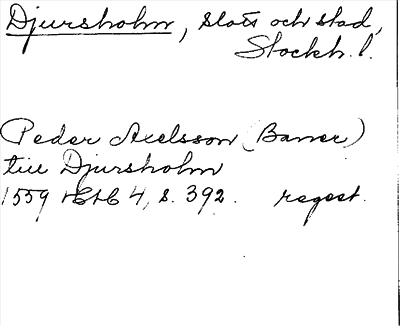 Djursholm, slott och stad,
Stockh. l.
Peder Axelsson (Baner)
till Djursholm
1559 HSH 4, s. 392. regest.